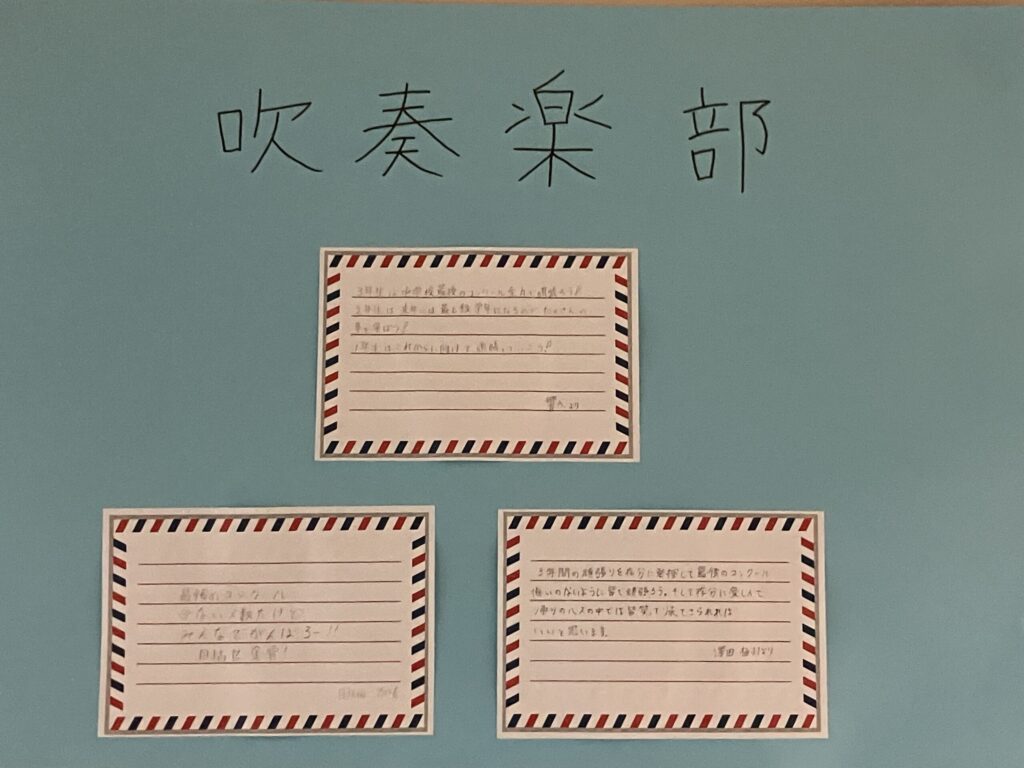 吹奏楽部
3年生は中学校最後のコンクール全力で頑張ろう!
2年生は来年には最上級学年になるので たくさんの
事を学ぼう!
1年生はこれからに向けて頑張っていこう!
より
最後のコンクール
少ない人数だけど
みんなでがんばろー!!
目指せ金賞!
3年間の頑張りを存分に発揮して最後のコンクール
悔いのないように皆で頑張ろう。そして存分に楽しんで
帰りのバスの中では皆笑って帰ってこられれば
いいと思います。
澤田 より